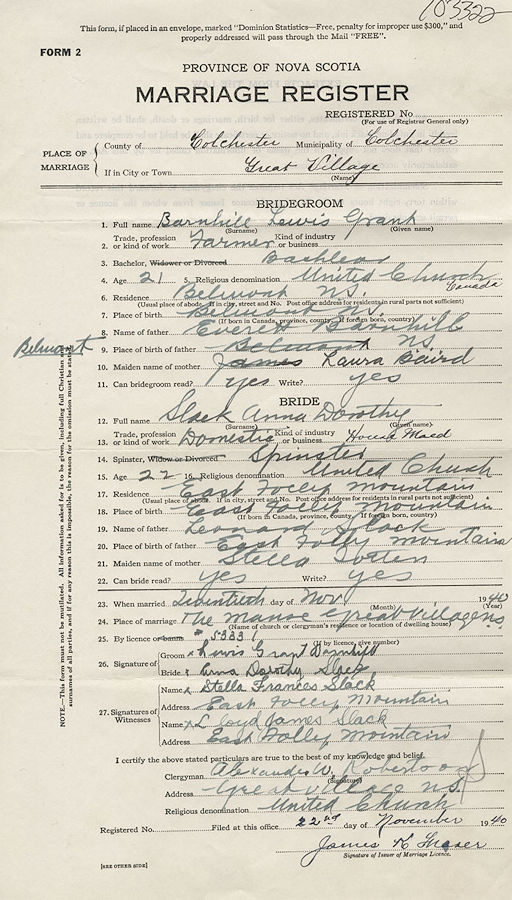 103322
This form, if placed in an envelope, marked "Dominion Statistics—Free, penalty for improper use $300," and
properly addressed will pass through the Mail "FREE".
FORM 2
PROVINCE OF NOVA SCOTIA
MARRIAGE REGISTER
REGISTERED No.
(For use of Registrar General only)
PLACE OF MARRIAGE
County of Colchester Municipality of Colchester
If in City or Town Great Village
(Name)
BRIDEGROOM
1. Full name Barnhill Lewis Grant
(Surname) (Given name)
2. Trade, profession or kind of work Farmer Kind of industry or business
3. Bachelor, Widower or Divorced Bachleor
4. Age 21 5. Religious denomination United Church Canada
6. Residence Belmont N.S.
(Usual place of abode. If in city, street and No. Post office address for residents in rural parts not sufficient)
7. Place of birth Belmont N.S.
(If born in Canada, province, county. If foreign born, country)
8. Name of father Everett Barnhill
Belmont
9. Place of birth of father Belmont N.S.
10. Maiden name of mother James Laura Baird
11. Can bridegroom read? yes Write? yes
BRIDE
12. Full name Slack Anna Dorothy
(Surname) (Given name)
13. Trade, profession or kind of work Domestic Kind of industry or business House Maed
14. Spinster, Widow or Divorced Spinster
15. Age 22 16. Religious denomination United Church
17. Residence East Folly Mountain
(Usual place of abode. If in city, street and No. Post office address for residents in rural parts not sufficient)
18. Place of birth East Folly Mountain
(If born in Canada, province, county. If foreign born, country)
19. Name of father Leonard Slack
20. Place of birth of father East Folly Mountain
21. Maiden name of mother Stella Totten
22. Can bride read? yes Write? yes
23. When married Twentieth day of Nov. 1940
(Month) (Year)
24. Place of marriage The Manse Great Village N.S.
(Name of church or clergyman's residence or location of dwelling house)
25. By licence or banns # 5333
(If by licence, give number)
26. Signature of
Groom x Lewis Grant Barnhill
Bride x Anna Dorothy Slack
27. Signatures of Witnesses
Name x Stella Frances Slack
Address East Folly Mountain
Name x Lloyd James Slack
Address East Folly Mountain
I certify the above stated particulars are true to the best of my knowledge and belief.
Clergyman Alexander W. Robertson
(Signature)
Address Great Village N.S.
Religious denomination United Church
Registered No. Filed at this office 22nd day of November 1940
James K Fraser
Signature of Issuer of Marriage Licence.
[SEE OTHER SIDE]
NOTE.—This form must not be mutilated. All information asked for is to be given, including full Christian and
surnames of all parties, and if for any reason this is impossible, the reason for the omission must be stated.